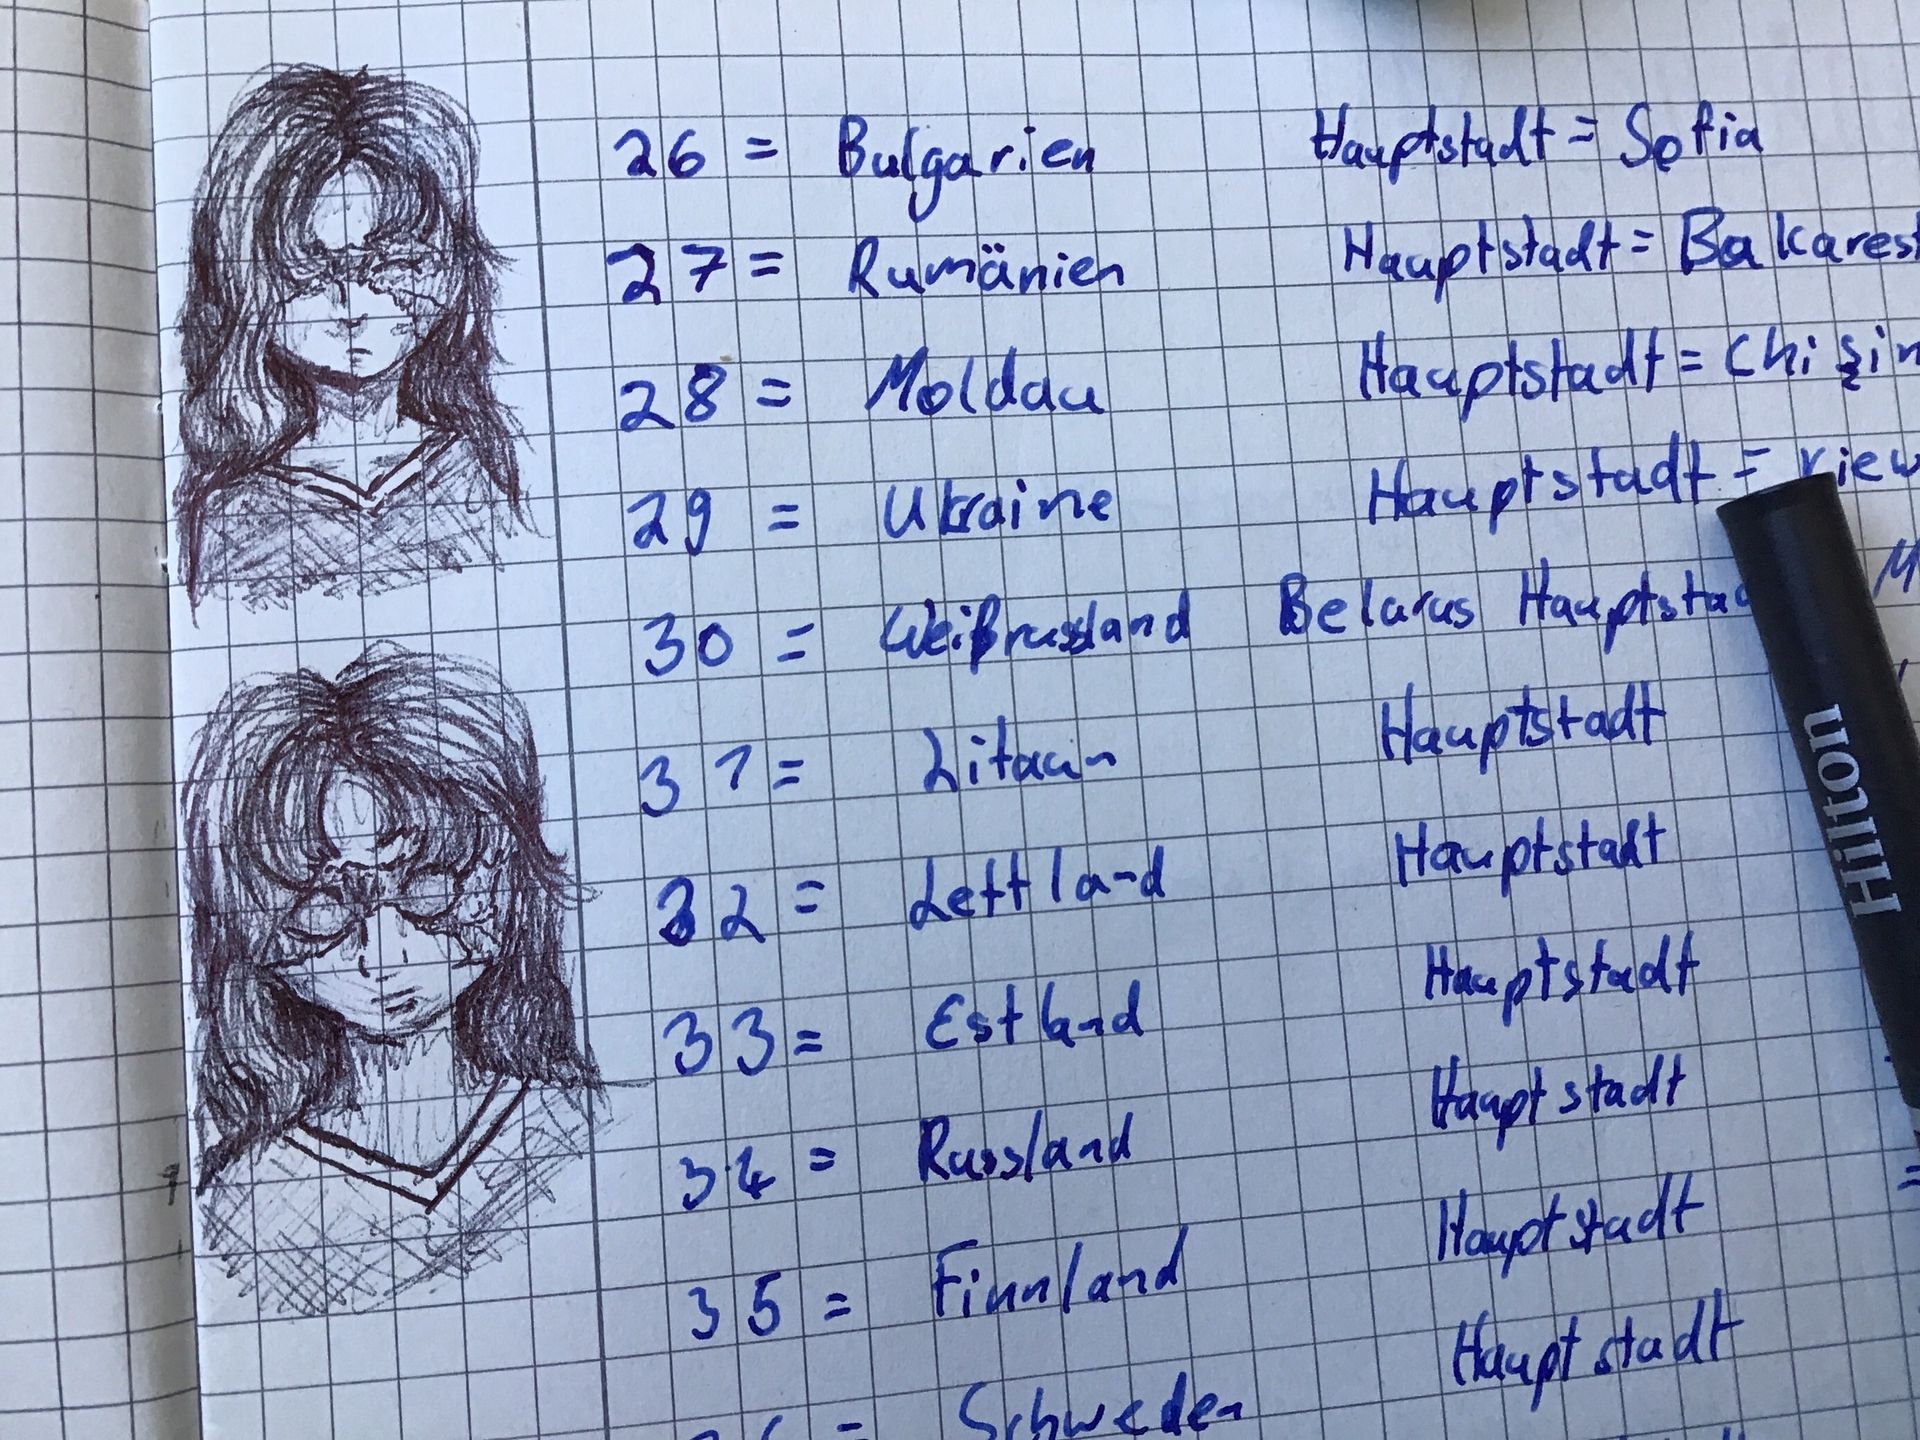 26 = Bulgarien Hauptstadt = Sofia
27 = Rumänien Hauptstadt = Bakarest
28 = Moldau Hauptstadt = Chişin
29 = Ukraine Hauptstadt = Kiew
30 = Weißrussland Belarus Hauptstad M
31 = Litaun Hauptstadt
32 = Lettland Hauptstadt
33 = Estland Hauptstadt
34 = Russland Hauptstadt
35 = Finnland Hauptstadt
36 = Schweden Hauptstadt
Hilton